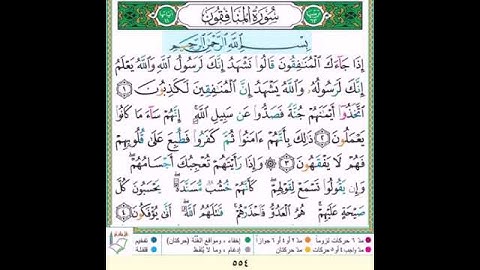 سُورَةُ الْمُنَافِقُونَ
بِسْمِ اللَّهِ الرَّحْمَٰنِ الرَّحِيمِ
إِذَا جَآءَكَ ٱلْمُنَٰفِقُونَ قَالُوا۟ نَشْهَدُ إِنَّكَ لَرَسُولُ ٱللَّهِ وَٱللَّهُ يَعْلَمُ
إِنَّكَ لَرَسُولُهُۥ وَٱللَّهُ يَشْهَدُ إِنَّ ٱلْمُنَٰفِقِينَ لَكَٰذِبُونَ ١
ٱتَّخَذُوٓا۟ أَيْمَٰنَهُمْ جُنَّةً فَصَدُّوا۟ عَن سَبِيلِ ٱللَّهِ ۚ إِنَّهُمْ سَآءَ مَا كَانُوا۟
يَعْمَلُونَ ٢ ذَٰلِكَ بِأَنَّهُمْ ءَامَنُوا۟ ثُمَّ كَفَرُوا۟ فَطُبِعَ عَلَىٰ قُلُوبِهِمْ
فَهُمْ لَا يَفْقَهُونَ ٣ ۞ وَإِذَا رَأَيْتَهُمْ تُعْجِبُكَ أَجْسَامُهُمْ ۖ
وَإِن يَقُولُوا۟ تَسْمَعْ لِقَوْلِهِمْ ۖ كَأَنَّهُمْ خُشُبٌ مُّسَنَّدَةٌ ۖ يَحْسَبُونَ كُلَّ
صَيْحَةٍ عَلَيْهِمْ ۚ هُمُ ٱلْعَدُوُّ فَٱحْذَرْهُمْ ۚ قَٰتَلَهُمُ ٱللَّهُ ۖ أَنَّىٰ يُؤْفَكُونَ ٤
مدّ ٦ حركات لزوماً مدّ ٢ أو ٤ أو ٦ جوازاً إخفاء، ومواقع الغُنَّة (حركتان) تفخيم
مدّ واجب ٤ أو ٥ حركات مدّ حركتان إدغام، وما لا يُلفظ قلقلة
٥٥٤